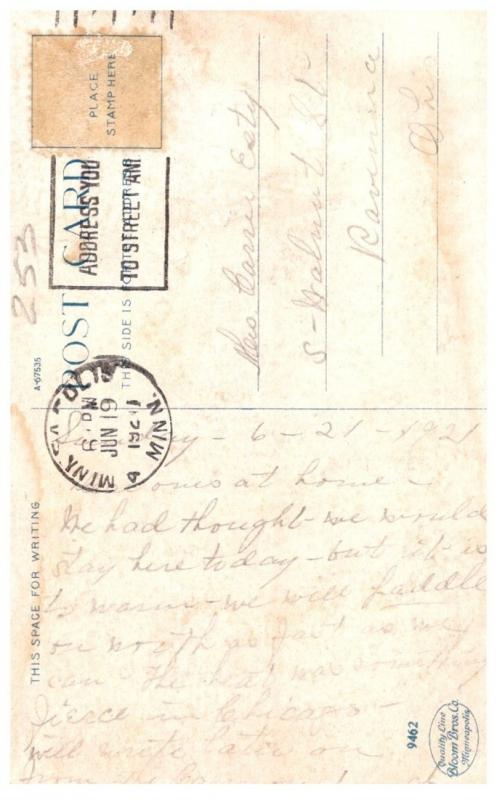 PLACE
STAMP HERE
ADDRESS YOU
TO STREET AN
253
POST CARD
THIS SIDE IS
A-67535
6 PM
JUN 19
1921
MINN.
Mrs. Carrie Esty
S- Walnut St.
Ravenna
Ohio
THIS SPACE FOR WRITING
Sunday - 6 - 21 - 1921
ones at home -
We had thought we would
stay here today - but it is
to warm - we will paddle
on north as fast as we
can. The heat was something
fierce in Chicago -
will write later on
from the
9462
Quality Line
Bloom Bros. Co.
Minneapolis